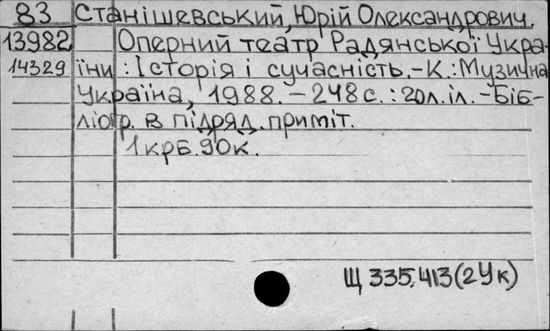 83 Станішевський, Юрій Олександрович.
13982 Оперний театр Радянської Укра-
14329 їни : Історія і сучасність.-К.: Музична
Україна, 1988. – 248 с. : 20 л.іл. - Біб-
ліогр. в підряд. приміт.
1 крб. 90 к.
Щ 335.413(2Ук)